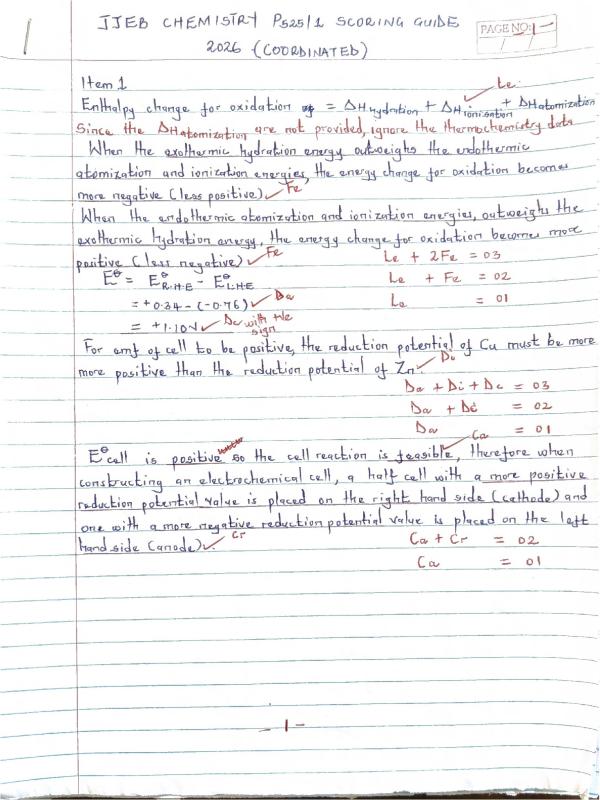 JJEB CHEMISTRY P525/1 SCORING GUIDE
PAGE NO: 1
2026 (COORDINATED)
Item 1
Le
Enthalpy change for oxidation = ΔHhydration + ΔHionisation + ΔHatomization
Since the ΔHatomization are not provided, ignore the thermochemistry data
When the exothermic hydration energy outweighs the endothermic
atomization and ionization energies, the energy change for oxidation becomes
more negative (less positive) ✓ Fe
When the endothermic atomization and ionization energies, outweighs the
exothermic hydration energy, the energy change for oxidation becomes more
positive (less negative) ✓ Fe
Le + 2Fe = 03
E⊖ = E⊖R.H.E - E⊖L.H.E
Le + Fe = 02
= +0.34 - (-0.76) ✓ Da
Le = 01
= +1.10V ✓ Dc with +ve sign
For emf of cell to be positive, the reduction potential of Cu must be more
more positive than the reduction potential of Zn ✓ Di
Da + Di + Dc = 03
Da + Di = 02
Da = 01
Ca
E⊖cell is positive so the cell reaction is feasible, therefore when
constructing an electrochemical cell, a half cell with a more positive
reduction potential value is placed on the right hand side (cathode) and
one with a more negative reduction potential value is placed on the left
hand side (anode). ✓ Cr
Ca + Cr = 02
Ca = 01
- 1 -